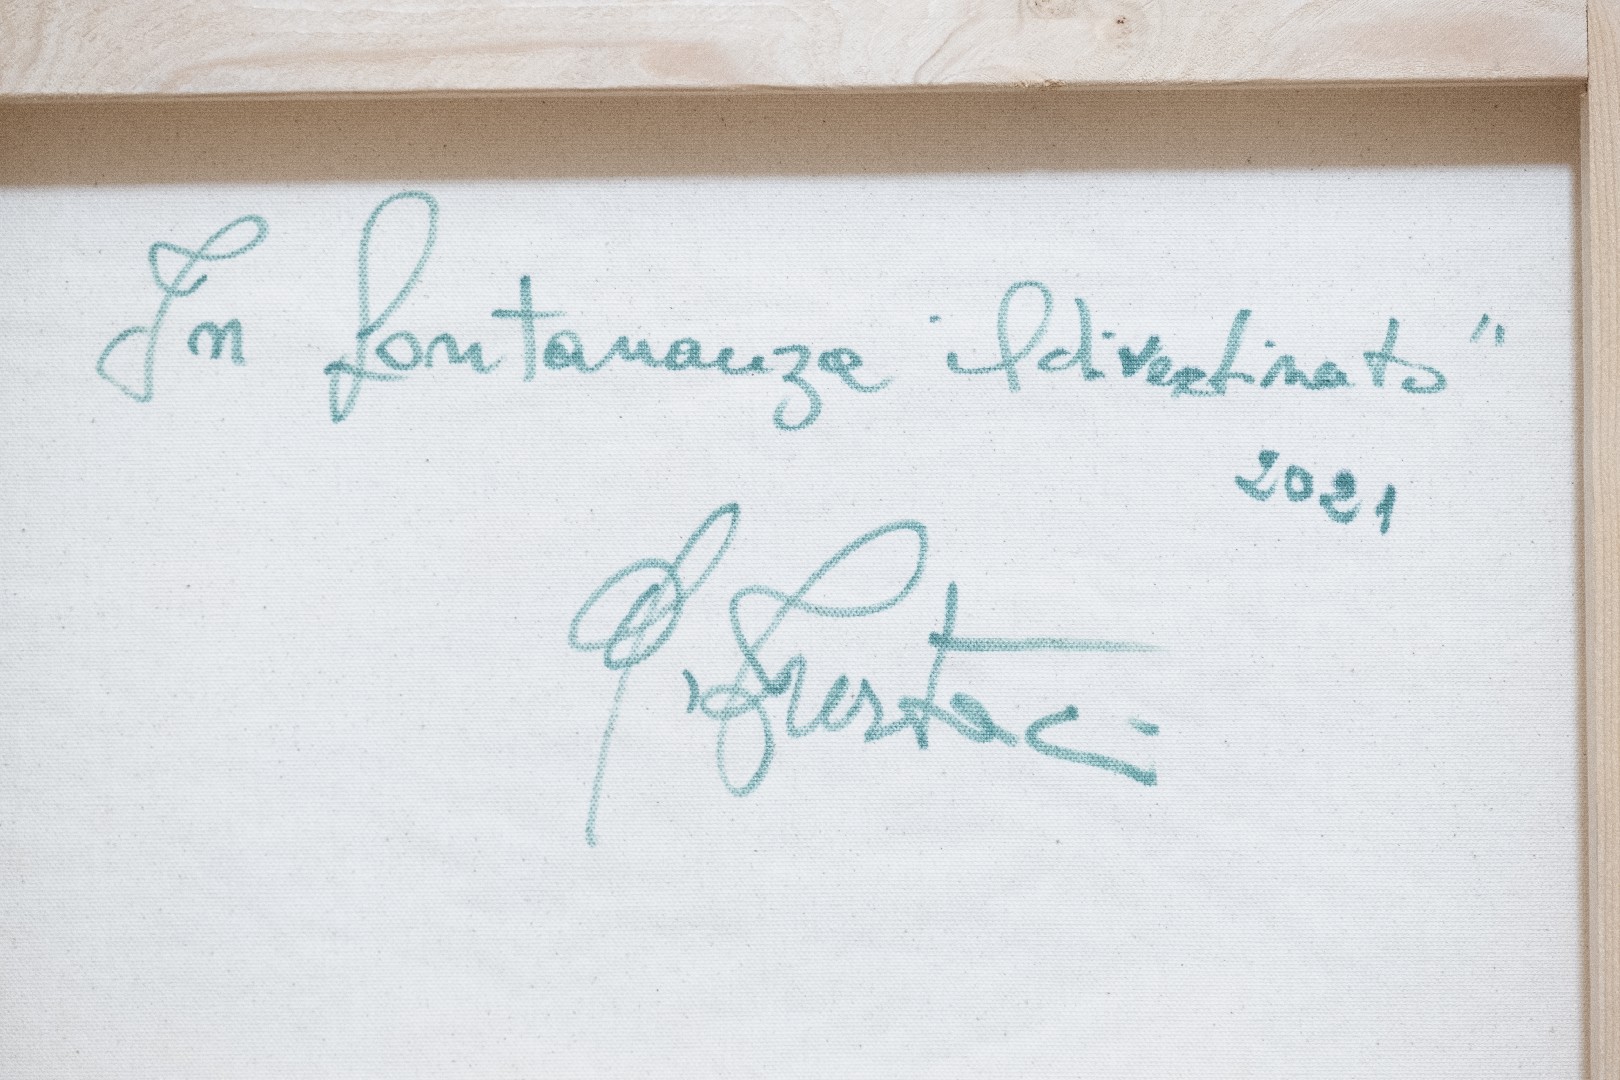 In lontananza il divertinato"
2021